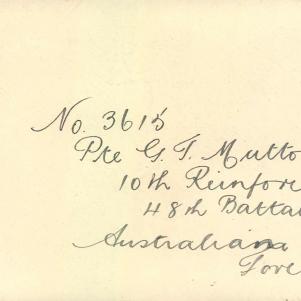 No. 3615
Pte G. T. Mutto
10th Reinfor
48th Battal
Australian